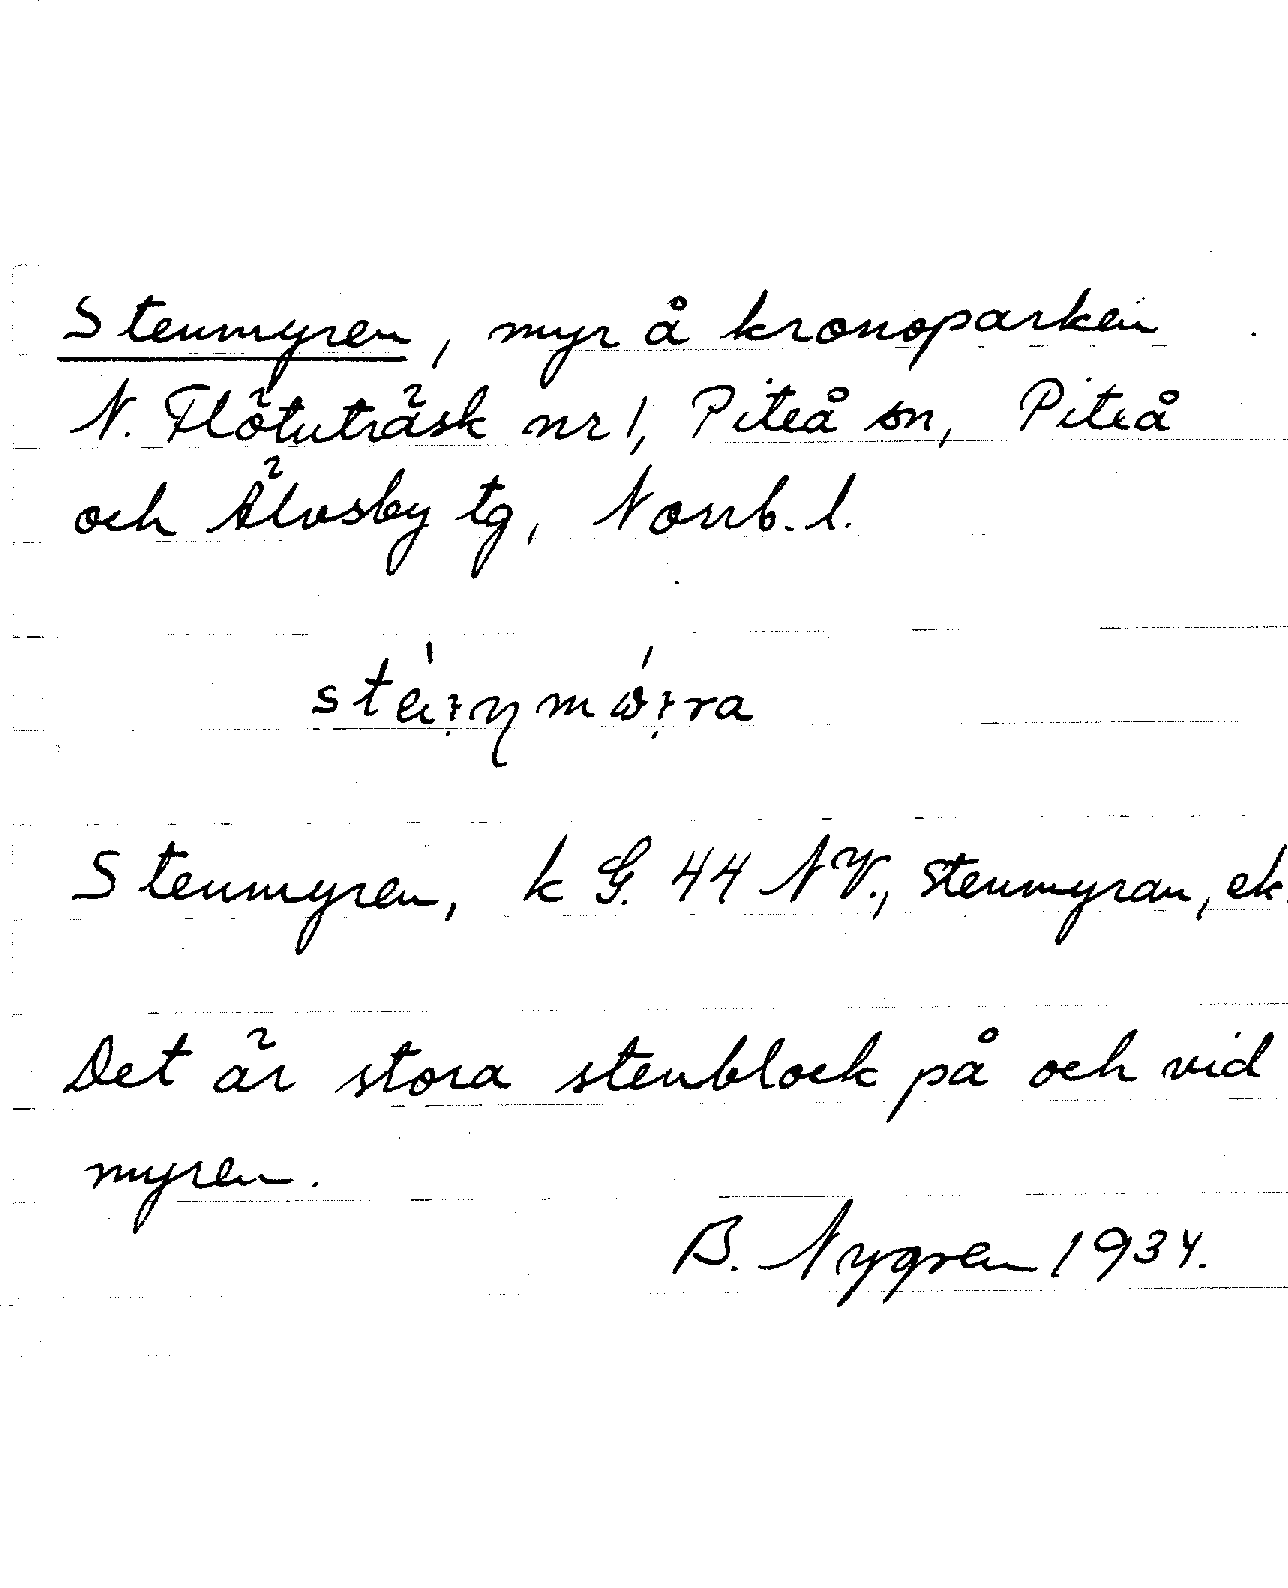 Stenmyren, myr å kronoparken
N. Flötuträsk nr 1, Piteå sn, Piteå
och Älvsby tg, Norrb. l.
Stenmyren, k G. 44 NV., Stenmyran, ek.
Det är stora stenblock på och vid
myren.
B. Nygren 1934.